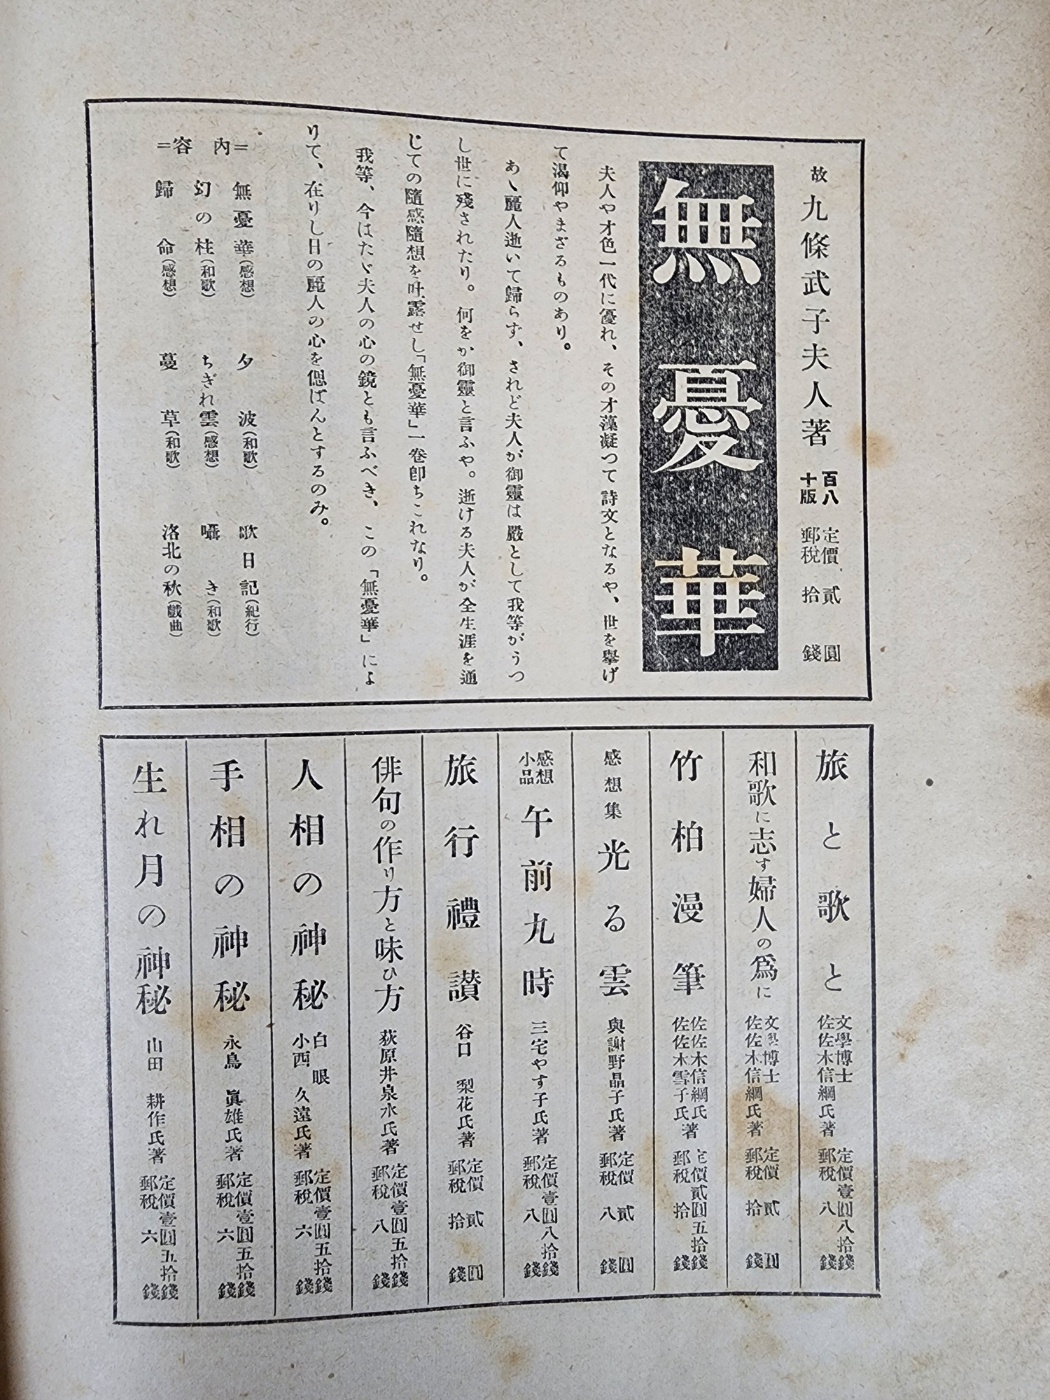 故 九條武子夫人著 百八十版 定價 貳圓 郵稅 拾錢
無憂華
夫人や才色一代に優れ、その才藻凝つて詩文となるや、世を擧げ
て渴仰やまざるものあり。
あゝ麗人逝いて歸らず、されど夫人が御靈は嚴として我等がうつ
し世に殘されたり。何をか御靈と言ふや。逝ける夫人が全生涯を通
じての隨感隨想を吐露せし「無憂華」一卷卽ちこれなり。
我等、今はたゞ夫人の心の鏡とも言ふべき、この「無憂華」によ
りて、在りし日の麗人の心を偲ばんとするのみ。
=內容=
無憂華(感想) 夕波(和歌) 歌日記(紀行)
幻の柱(和歌) ちぎれ雲(感想) 囁き(和歌)
歸命(感想) 蔓草(和歌) 洛北の秋(戲曲)
旅と歌と 文學博士 佐佐木信綱氏著 定價壹圓八拾錢 郵稅八錢
和歌に志す婦人の爲に 文學博士 佐佐木信綱氏著 定價貳圓 郵稅拾錢
竹柏漫筆 佐佐木信綱氏 佐佐木雪子氏著 定價貳圓五拾錢 郵稅拾錢
感想集 光る雲 與謝野晶子氏著 定價貳圓 郵稅八錢
感想小品 午前九時 三宅やす子氏著 定價壹圓八拾錢 郵稅八錢
旅行禮讃 谷口梨花氏著 定價貳圓 郵稅拾錢
俳句の作り方と味ひ方 荻原井泉水氏著 定價壹圓五拾錢 郵稅八錢
人相の神秘 白眼 小西久遠氏著 定價壹圓五拾錢 郵稅六錢
手相の神秘 永鳥眞雄氏著 定價壹圓五拾錢 郵稅六錢
生れ月の神秘 山田耕作氏著 定價壹圓五拾錢 郵稅六錢